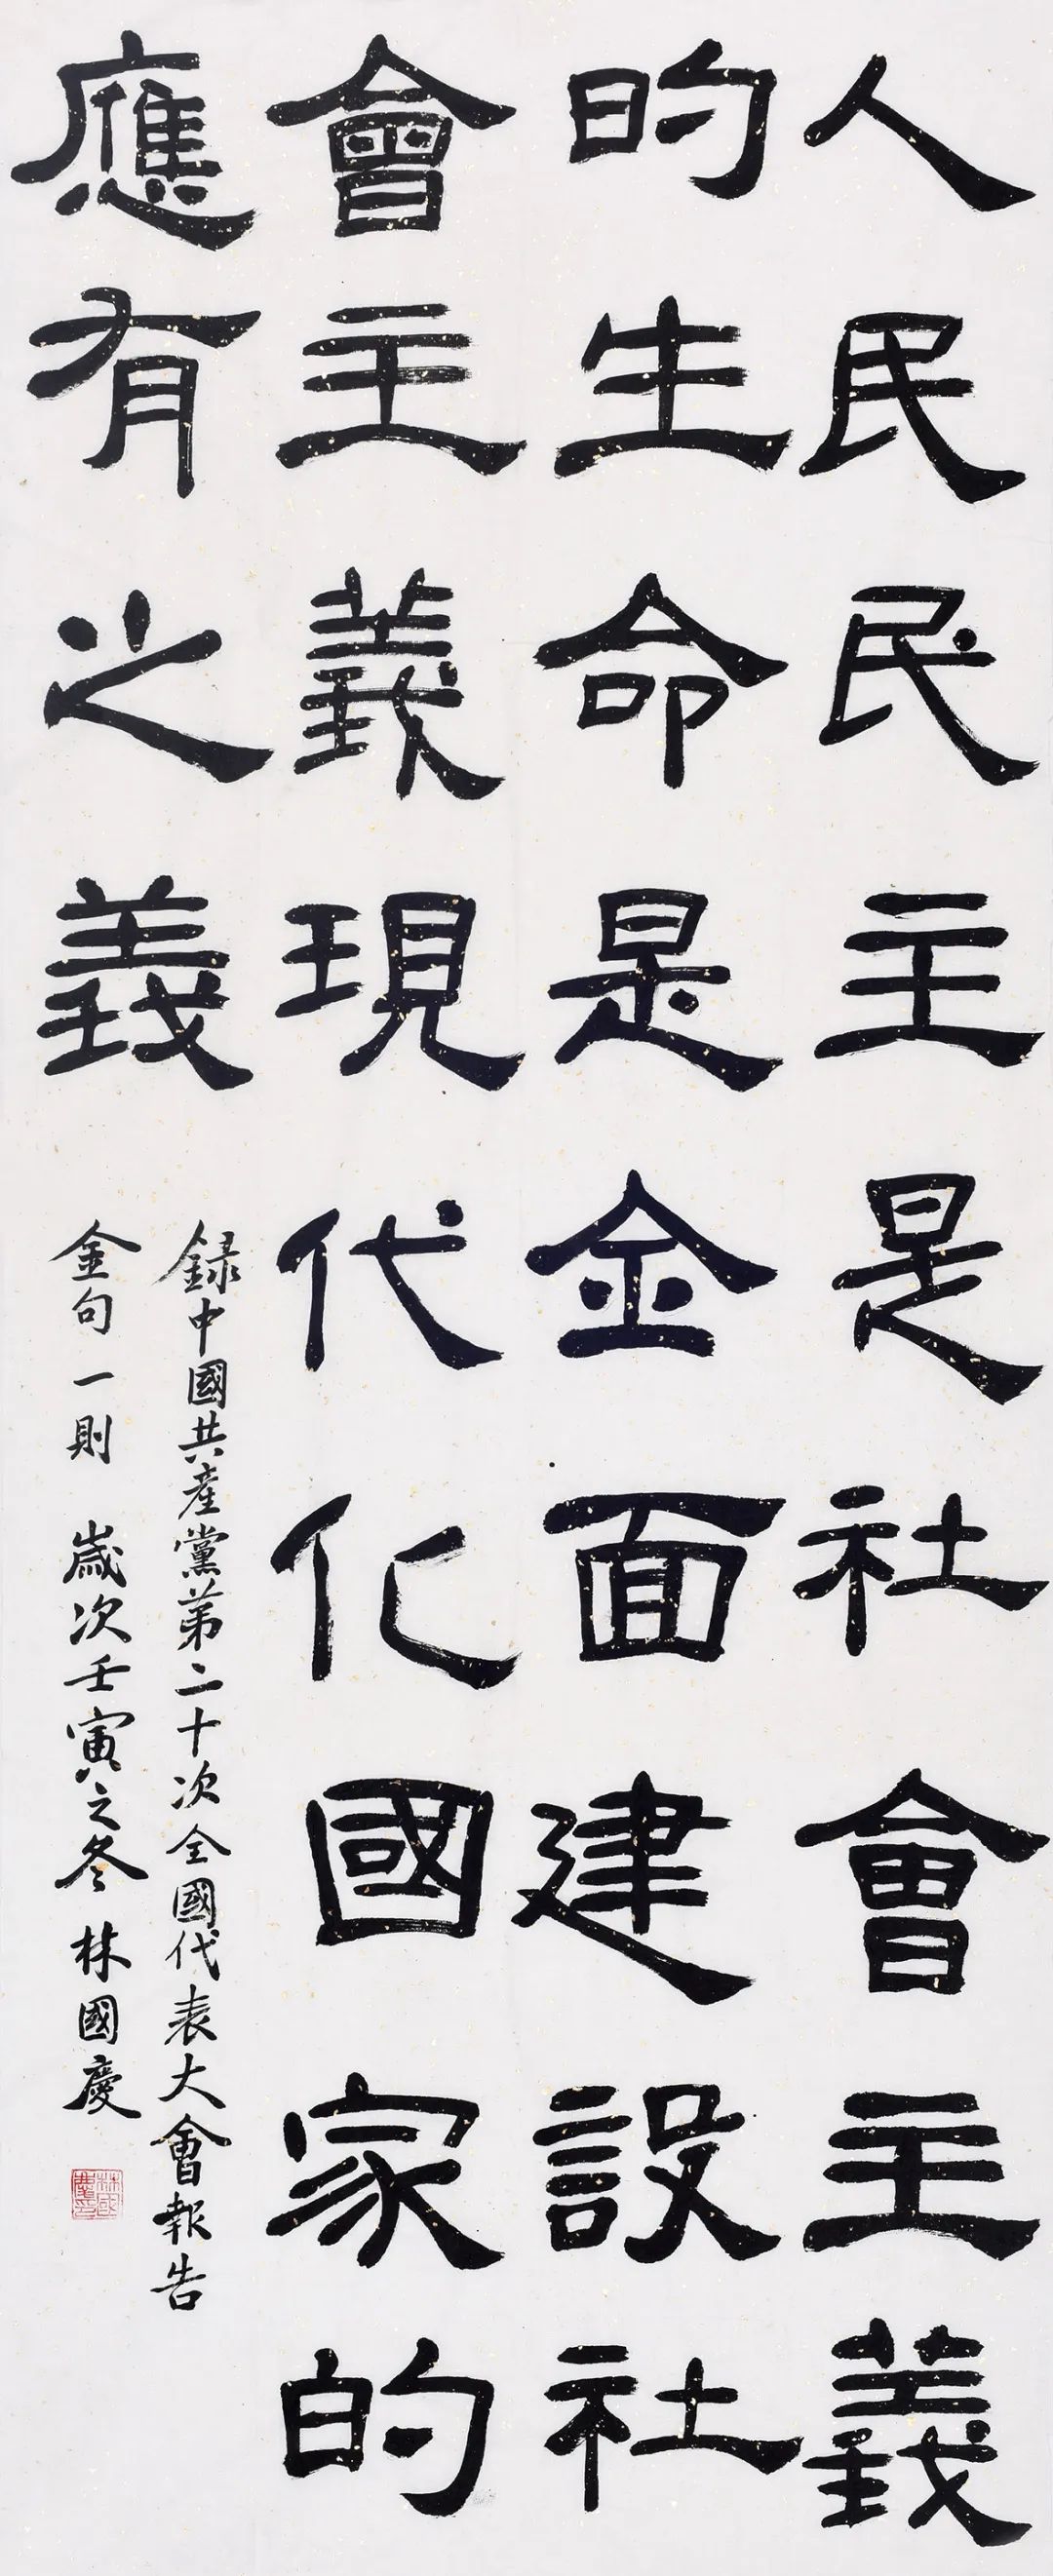 人民民主是社會主義
的生命是金面建設社
會主義現代化國家的
應有之義
録中國共產黨第二十次全國代表大會報告
金句一則 歲次壬寅之冬 林國慶